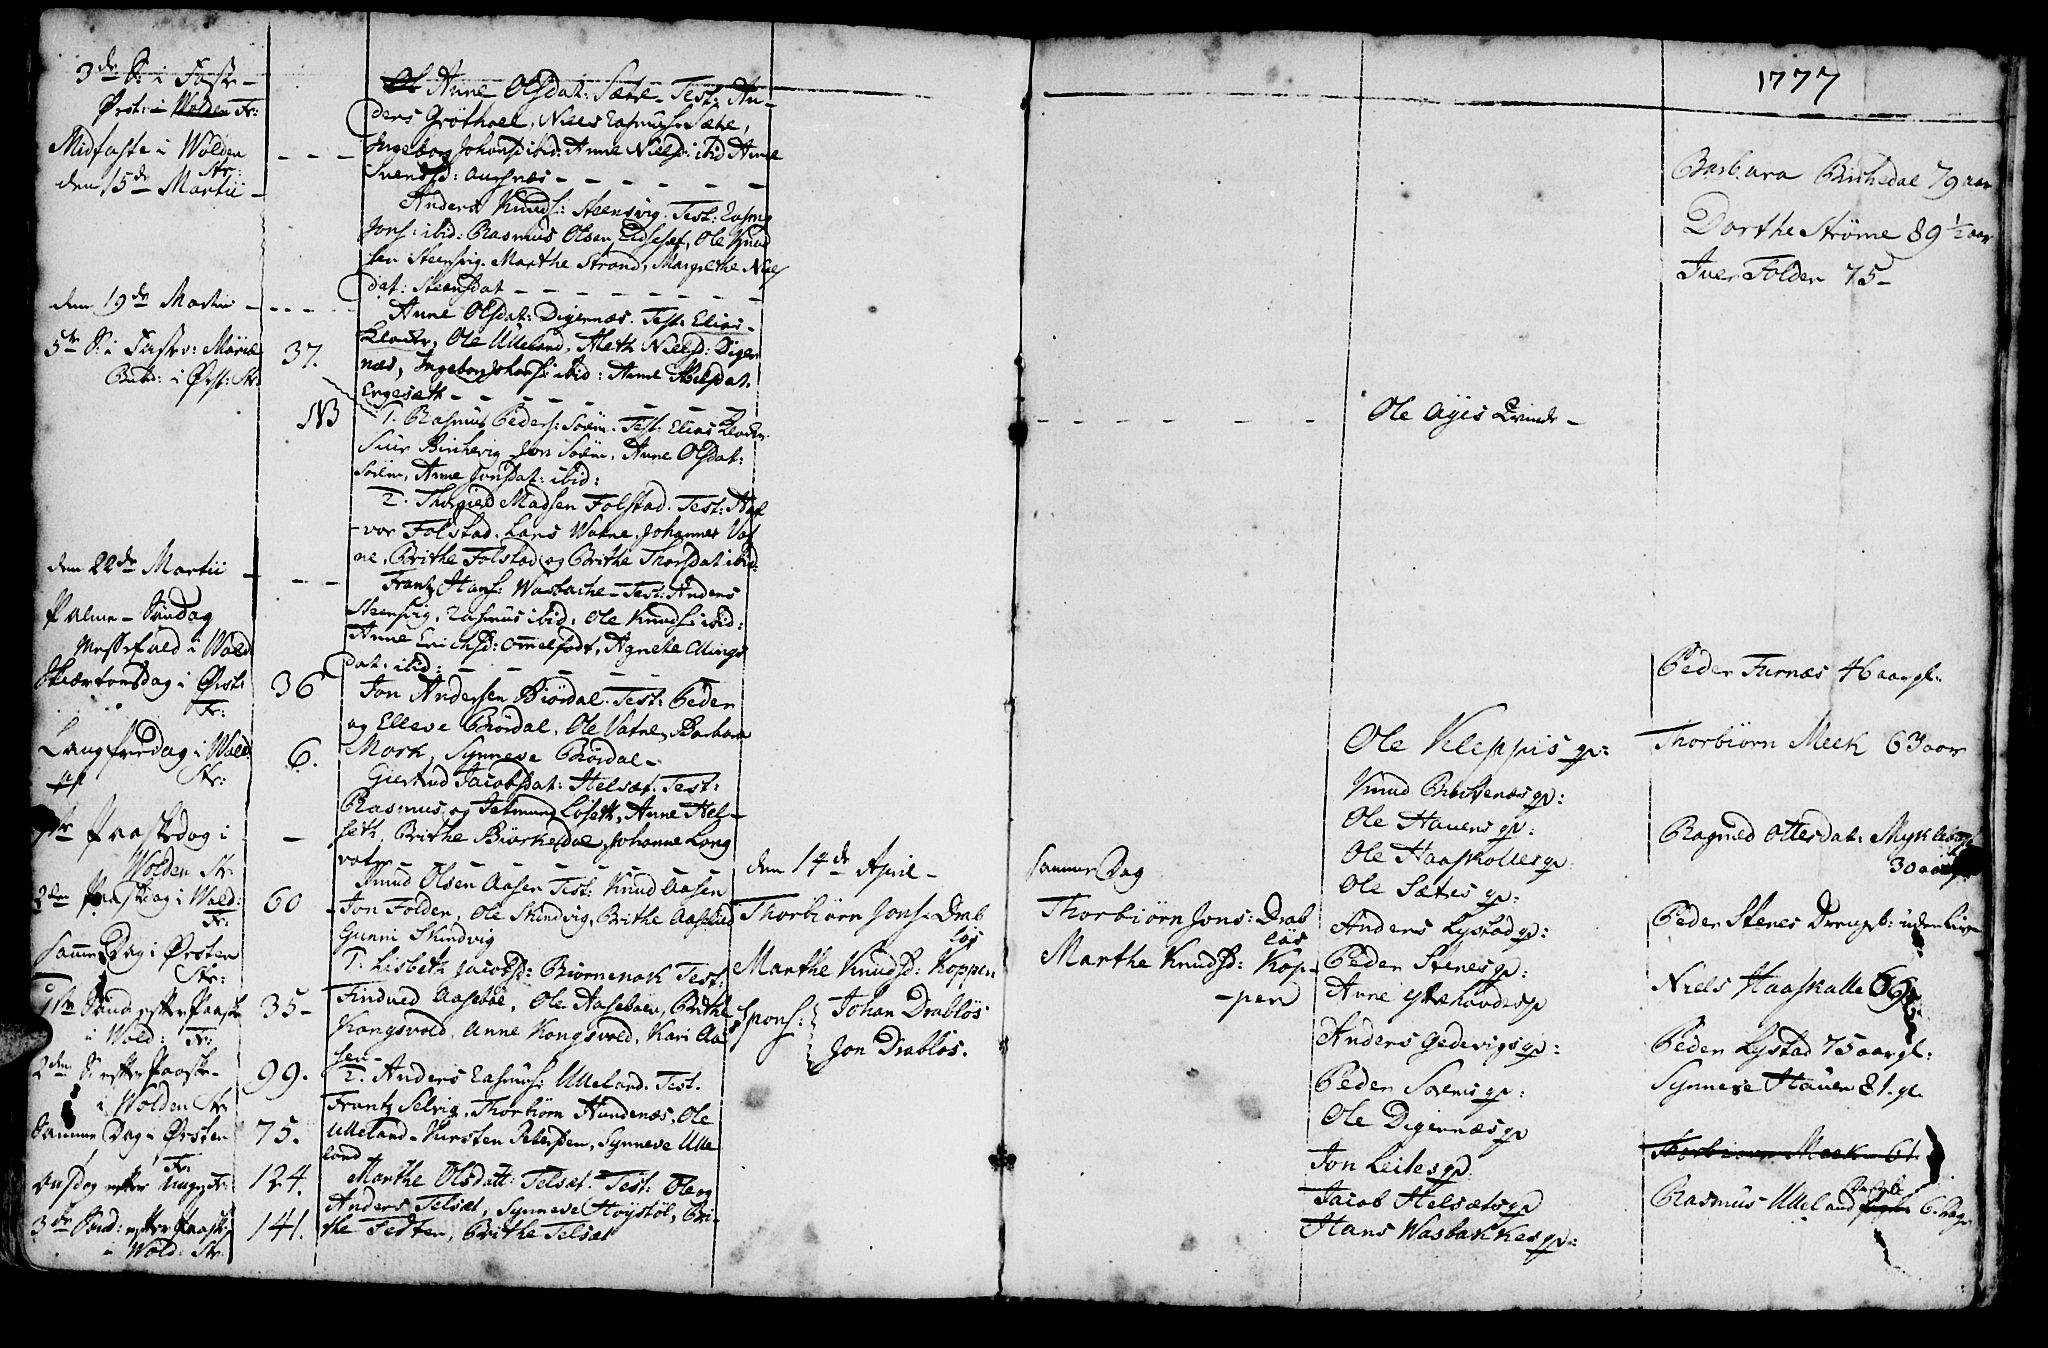 1777
3de S: i Faste-
Ørst: i Wolden Fr:
Midfaste i Wolden
Str:
den 15de Martii -
den 19de Martii -
5te S: i Faste: Mariæ
Bud: i Ørst: Str:
37.
NB
den 22de Martii -
Palme-Søndag
Messefald i Wold
Skiærtorsdag i Ørst:
Fr:
36
Langfredag i Wold:
Str:
6.
Paaskedag i
Wolden Str:
2den Paaskedag i Wold:
Fr:
60
samme Dag i Ørsten
Str:
1ste Sønd efter Paaske
i Wold: Fr:
35-
2den S. efter Paaske-
i Wolden Str
99.
Samme Dag i Ørsten
Fr:
75.
124.
3die Sønd: efter Paaske
i Wold: Str:
141.
Anne Olsdat: Sætre. Test: An-
ders Grøthoel, Niels Rasmus: Sætre,
Ingeborg Johansd ibid: Anne Nielsd: ibid Anne
Svendsd: Aursnæs
Anders Knuds: Steensvig. Test: Rasmus
Jons: ibid: Rasmus Olsen Eidseset, Ole Knud
sen Steensvig. Marthe Strand, Margrethe Niels
dat:
Anne Olsdat: Digernæs. Test: Elias
Klocker, Ole Ulleland, Aleth Nielsd: Diger
næs, Ingeborg Johans: ibid: Anne Nielsdat.
Engeseth
1. Rasmus Peders: Soem. Test: Elias Klocker.
Siur Birchevig Jon Soem, Anne Olsdat:
Soem, Anne Jonsdat: ibid:
2. Thorgied Madsen Folstad. Test: Hal
-vor Folstad. Lars Watne. Johannes Vat
ne, Brithe Folstad og Brithe Thorsdat ibid:
Frantz Hans: Wasbache. Test: Anders
Steensvig, Rasmus ibid: Ole Knuds: ibid:
Anne Erichsd: Ommelfodt, Agnethe Ellings
dat: ibid:
Jon Andersen Biørdal. Test: Peder
og Elleve Biørdal, Ole Vatne, Barbara
Mork, Synneve Biørdal-
Giertrud Jacobsdat: Helset. Test:
Rasmus og Jetmund Løseth, Anne Hel-
seth, Brithe Biørkedal, Johanne Lang
vatn
Knud Olsen Aasen Test: Knud Aasen
Jon Folden, Ole Skindvig, Brithe Aaselied
Gunni Skindvig
1. Lisbeth Jacobsd: Biørnenak Test:
Findved Aaseboe, Ole Aaseboen, Brithe
Kongsvold, Anne Kongsvold, Kari Aa-
sen-
2. Anders Rasmus: Ulleland. Test.
Frantz Selvig. Thorbiørn Hundenæs, Ole
Ulleland. Kirsten Petersen, Synneve Ulle
land
Marthe Olsdatt: Telset. Test: Ole og
Anders Telset, Synneve Høystøl, Bri-
the Tedten, Brithe Telset
den 14de April -
Thorbiørn Jons: Drab
løs
Marthe Knudsd: Koppen
Spons: { Johan Drabløs
Jon Drabløs.
samme Dag
Thorbiørn Jons: Drab
løs
Marthe Knudsd: Kop-
-pen
Ole Ayes Kvinde -
Ole Kleppis qv:
Knud qv:
Ole Havens qv:
Ole Haaskolles qv
Ole Sætres qv:
Anders Lystad qv:
Peder Stenes qv:
Anne qv
Anders Gedevigs qv:
Peder Soems qv:
Ole Digernæs qv
Jon Leites qv.
Jacob Helsæts qv
Hans Wasbakkes qv:
Barbara Birkedal 79 aar
Dorthe Strøme 89 1/2 aar
Iver Folden 75-
Peder Furnæs 46 aar gl:
Thorbiørn Meek 63 aar
Ragnild Ottersdat: Mykleb
30 aar
Peder Stenes Drengb: uden
Niels Haaskolle 66
Peder Lystad 75 aar gl:
Synneve Hauen 81. gl.
Thorbiørn Meek 61
Rasmus Ulleland 6. Dage